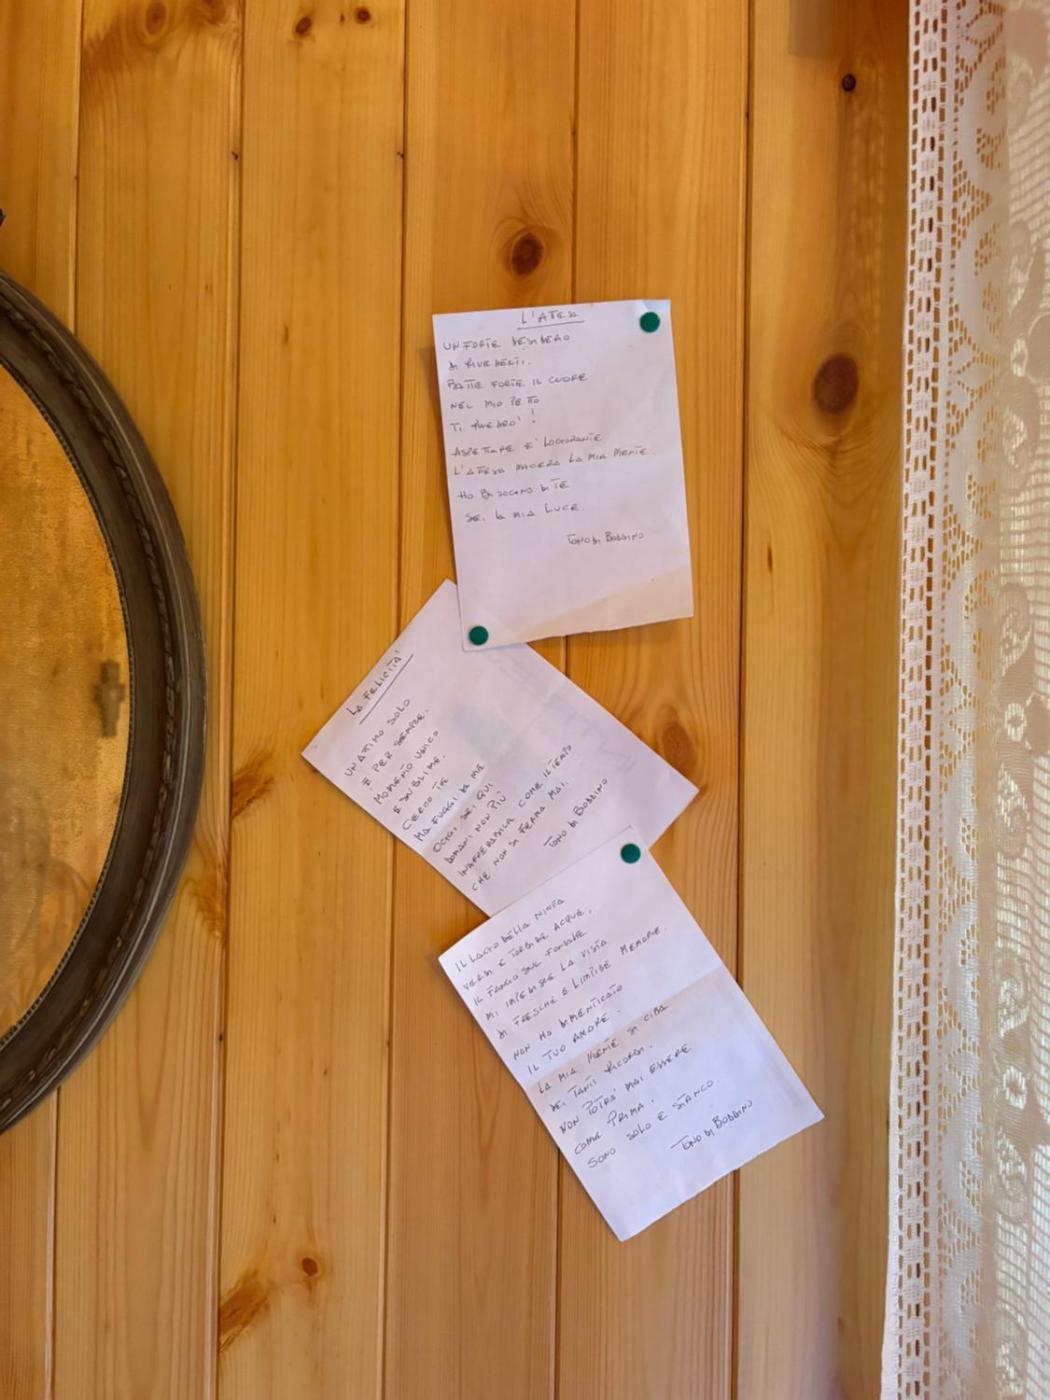 L'ATESA
UN FORTE DESIDERO
DI RIVEDERTI.
BATTE FORTE IL CUORE
NEL MIO PETTO
TI RIVEDRO' !
ASPETTARE E' LOGORANTE
L'ATESA MACERA LA MIA MENTE.
HO BISOGNO DI TE
SEI LA MIA LUCE.
TONO DI BOBBINO
LA FELICITA'
UN ATIMO SOLO
E PER SEMPRE.
MOMENTO UNICO
E SUBLIME.
CERCO TE
MA FUGGI DA ME
OGGI SEI QUI
DOMANI NON PIÙ
INAFFERABILE COME IL TEMPO
CHE NON SI FERMA MAI.
TONO DI BOBBINO
IL LAGO DELLA NINFA
VERDI E TORBIDE ACQUE,
IL FANGO SUL FONDALE
MI IMPEDISCE LA VISTA
DI FRESCHE E LIMPIDE MEMORIE.
NON HO DIMENTICATO
IL TUO AMORE.
LA MIA MENTE SI CIBA
DEI TANTI RICORDI.
NON POTRA' MAI ESSERE
COME PRIMA.
SONO SOLO E STANCO.
TONO DI BOBBINO